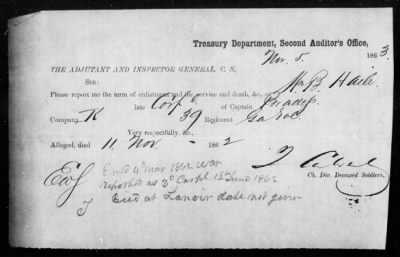 Treasury Department, Second Auditor's Office,
Nov. 5. 1863.
THE ADJUTANT AND INSPECTOR GENERAL, C. S.,
SIR:
Please report me the term of enlistment and the service and death, &c., of
late Corpl of Captain
Company K 39 Regiment
Very respectfully, &c.,
Alleged, died 11 Nov. - 1862
Enlt 4 Mar 1862 War
reported as 3d Corpl 12 June 1862
Died at Lenoir date not given
Ch. Div. Deceased Soldiers.